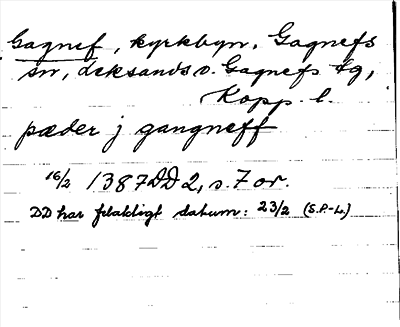 Gagnef, kyrkbyn, Gagnefs
sn, Leksands o. Gagnefs tg,
Kopp. l.
pæder j gangneff
16/2 1387 DD 2, s. 7 or.
DD har felaktigt datum: 23/2 (S.P-L.)